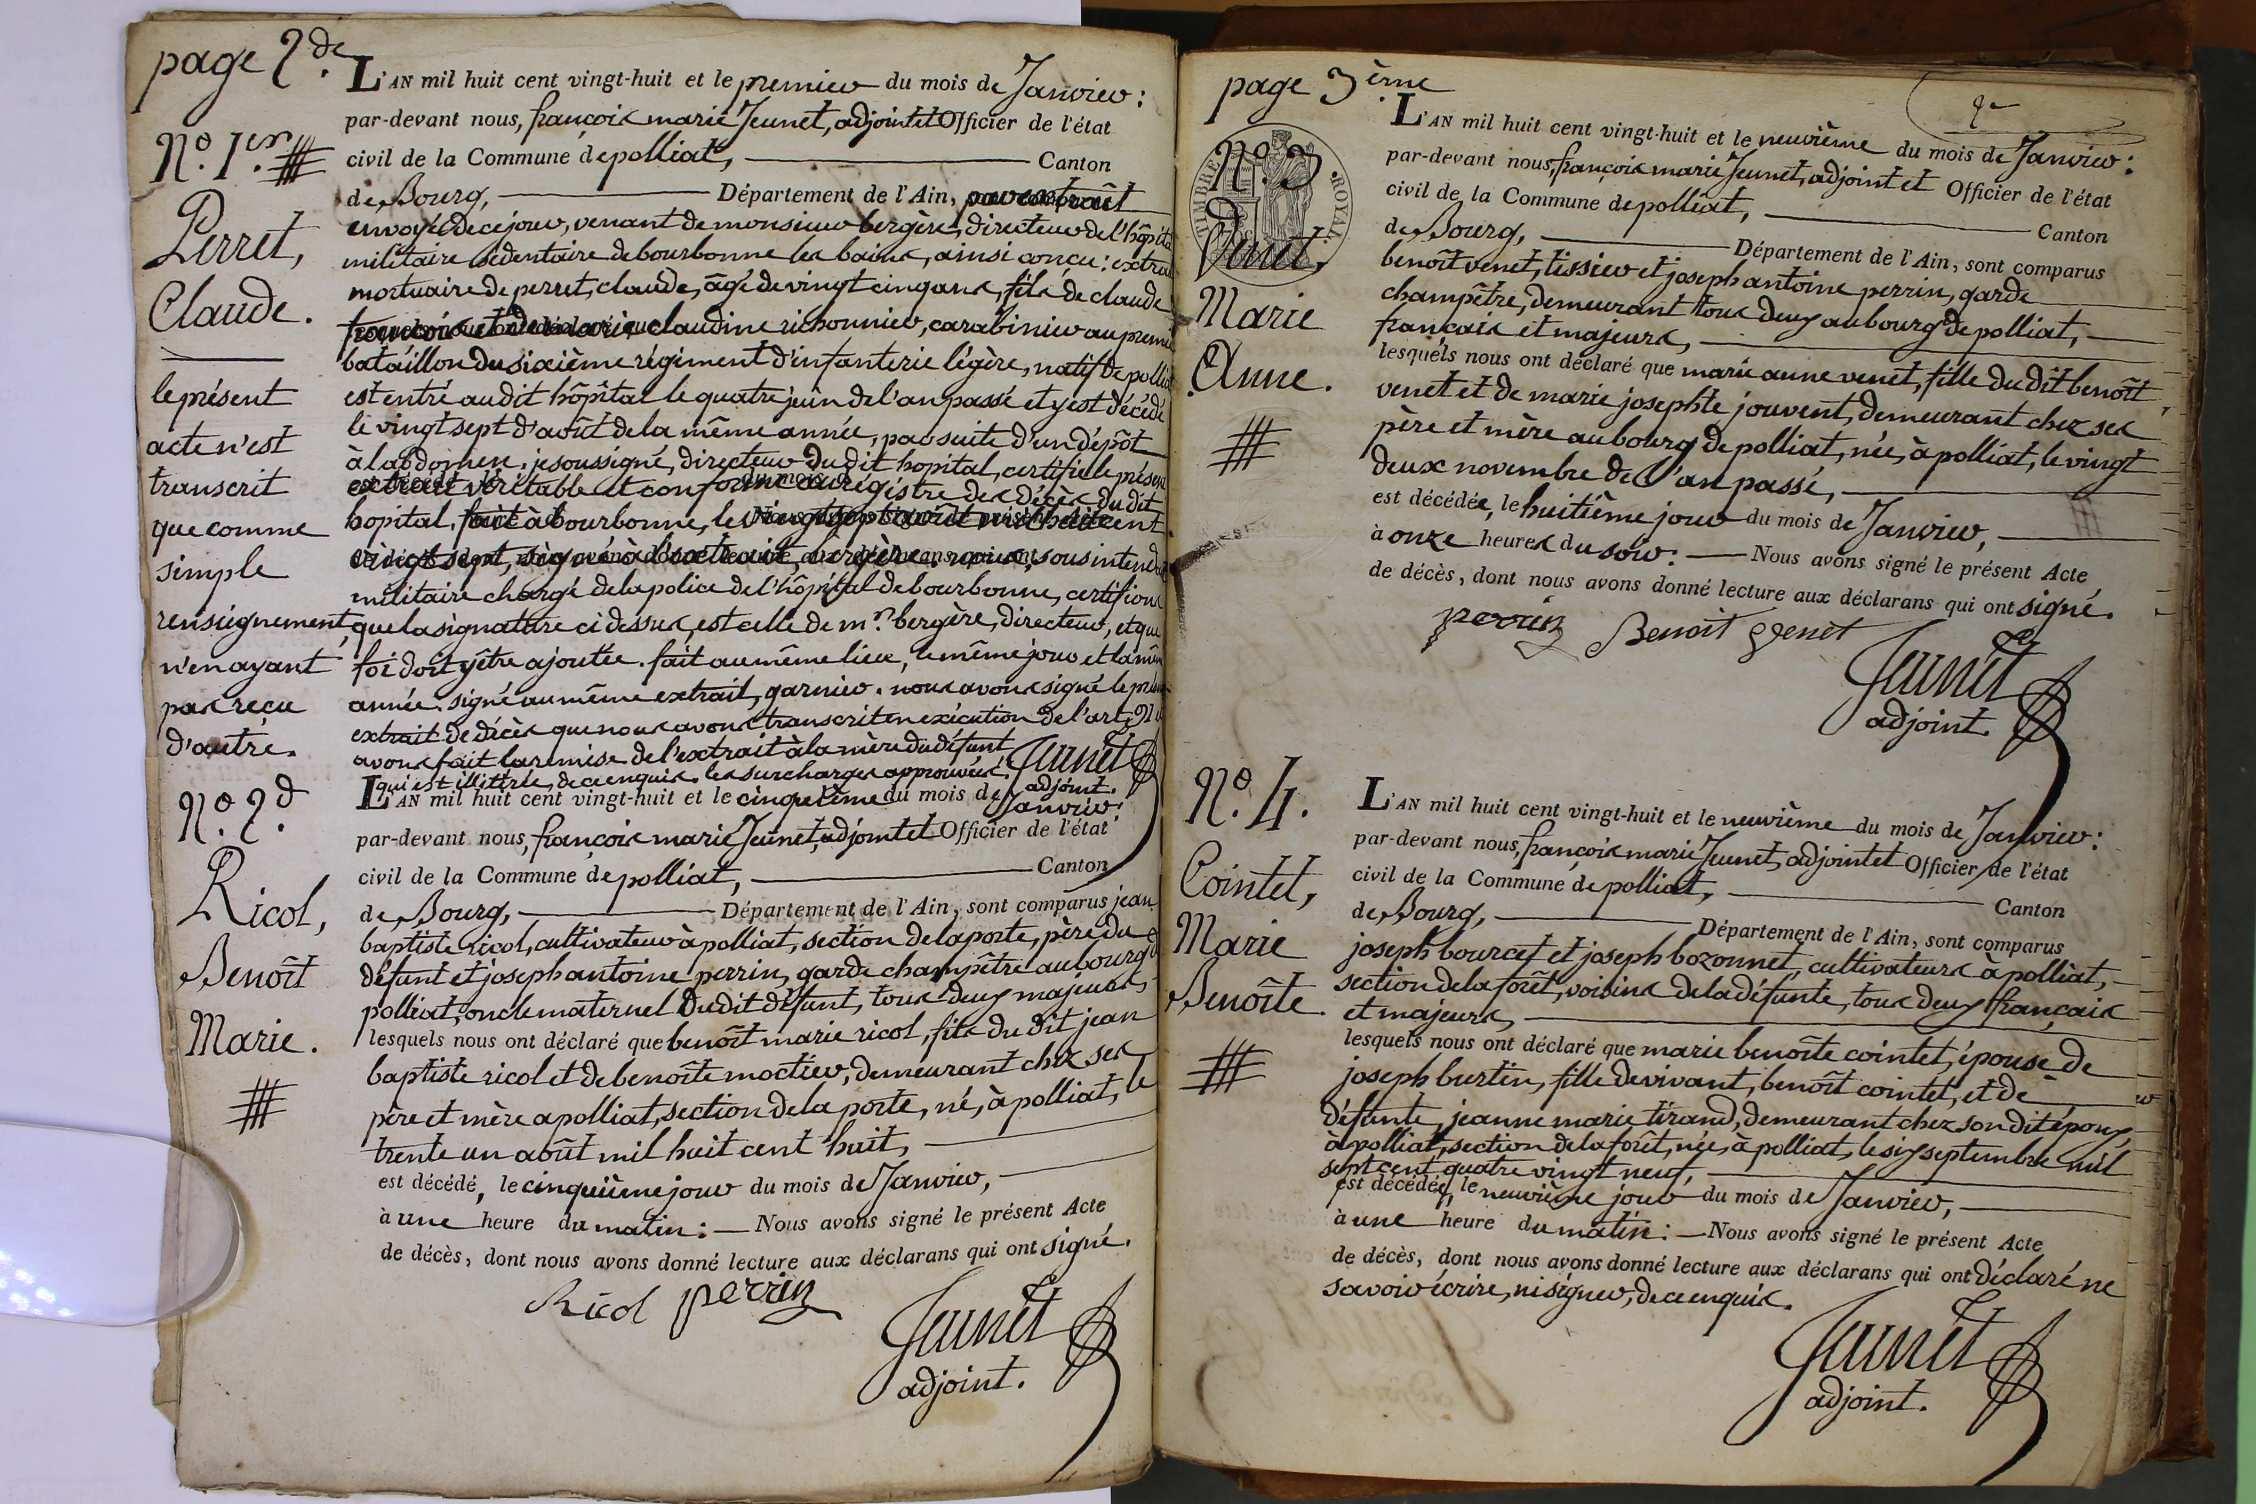 page 2de.
L'AN mil huit cent vingt-huit et le premier du mois de Janvier:
par-devant nous, françois marie Jeunet, adjoint et Officier de l'état
civil de la Commune de polliat, Canton
de Bourg, Département de l'Ain, par extrait
envoyé de ce jour, venant de monsieur bergère, directeur de l'hôpital
militaire sédentaire de bourbonne les bains, ainsi conçu: extrait
mortuaire de perret, claude, âgé de vingt cinq ans, fils de claude
françois et de marie claudine richonnier, carabinier au premier
bataillon du sixième régiment d'infanterie légère, natif de polliat
est entré au dit hôpital le quatre juin de l'an passé et y est décédé
le vingt sept d'août de la même année, par suite d'un dépôt
à l'abdomen. je soussigné, directeur du dit hopital, certifie le présent
extrait véritable et conforme au régistre des décès du dit
hopital. fait à bourbonne, le vingt sept août mil huit cent
vingt sept, signé à l'extrait, bergère. nous, sous intendant
militaire chargé de la police de l'hôpital de bourbonne, certifions
que la signature ci dessus, est celle de mr. bergère, directeur, et que
foi doit y être ajoutée. fait au même lieu, le même jour et la même
année. signé au même extrait, garnier. nous avons signé le présent
extrait de décès que nous avons transcrit en exécution de l'art.
avons fait la remise de l'extrait à la mère du défunt
qui est illittérée, de ce enquis. les surcharges approuvées. Jeunet
adjoint.
No. 1er.
Perret,
Claude.
le présent
acte n'est
transcrit
que comme
simple
renseignement,
n'en ayant
pas reçu
d'autre.
No. 2d.
Ricol,
Benoît
Marie.
L'AN mil huit cent vingt-huit et le cinquième du mois de Janvier:
par-devant nous, françois marie Jeunet, adjoint et Officier de l'état
civil de la Commune de polliat, Canton
de Bourg, Département de l'Ain, sont comparus jean
baptiste ricol, cultivateur à polliat, section de la poste, père du
défunt et joseph antoine perrin, garde champêtre au bourg de
polliat, oncle maternel du dit défunt, tous deux majeurs,
lesquels nous ont déclaré que benoît marie ricol, fils du dit jean
baptiste ricol et de benoîte moctier, demeurant chez ses
père et mère a polliat, section de la poste, né, à polliat, le
trente un août mil huit cent huit,
est décédé, le cinquième jour du mois de Janvier,
à une heure du matin: Nous avons signé le présent Acte
de décès, dont nous avons donné lecture aux déclarans qui ont signé.
Ricol perrin
Jeunet
adjoint.
page 3ème.
2e
TIMBRE ROYAL
No. 3.
Venet,
Marie
Anne.
L'AN mil huit cent vingt-huit et le neuvième du mois de Janvier:
par-devant nous, françois marie Jeunet, adjoint et Officier de l'état
civil de la Commune de polliat, Canton
de Bourg, Département de l'Ain, sont comparus
benoît venet, tissier et joseph antoine perrin, garde
champêtre, demeurant tous deux au bourg de polliat,
français et majeurs,
lesquels nous ont déclaré que marie anne venet, fille du dit benoît
venet et de marie josephte jouvent, demeurant chez ses
père et mère au bourg de polliat, née, à polliat, le vingt
deux novembre de l'an passé,
est décédée, le huitième jour du mois de Janvier,
à onze heures du soir: Nous avons signé le présent Acte
de décès, dont nous avons donné lecture aux déclarans qui ont signé.
perrin Benoît Venet
Jeunet
adjoint.
No. 4.
Cointet,
Marie
Benoîte.
L'AN mil huit cent vingt-huit et le neuvième du mois de Janvier:
par-devant nous, françois marie Jeunet, adjoint et Officier de l'état
civil de la Commune de polliat, Canton
de Bourg, Département de l'Ain, sont comparus
joseph bourcet et joseph bozonnet, cultivateurs à polliat,
section de la forêt, voisins de la défunte, tous deux français
et majeurs,
lesquels nous ont déclaré que marie benoîte cointet, épouse de
joseph burtin, fille de vivant, benoît cointet, et de
défunte, jeanne marie tirand, demeurant chez son dit époux
à polliat, section de la forêt, née, à polliat, le six septembre mil
sept cent quatre vingt neuf,
est décédée, le neuvième jour du mois de Janvier,
à une heure du matin: Nous avons signé le présent Acte
de décès, dont nous avons donné lecture aux déclarans qui ont déclaré ne
savoir écrire, ni signer, de ce enquis.
Jeunet
adjoint.